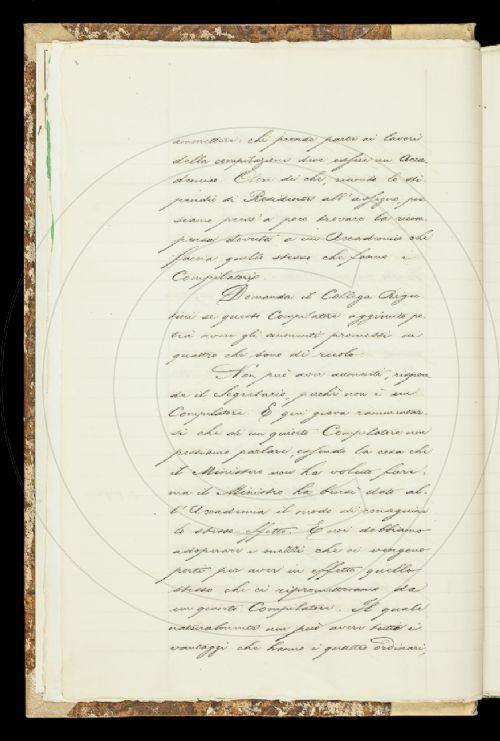 ammettere; chi prende parte ai lavori
della compilazione deve essere un Acca-
demico. Oltre di che, unendo lo sti-
pendio di Residente all'assegno, pos-
siamo press'a poco trovare la ricom-
pensa dovuta a un Accademico che
faccia quello stesso che fanno i
Compilatori.
Domanda il Collega Rigu-
tini se questo Compilatore aggiunto po-
trà avere gli aumenti promessi ai
quattro che sono di ruolo.
Non può aver aumenti, rispon-
de il Segretario, perchè non è un
Compilatore. E qui giova rammentar-
si che di un quinto Compilatore non
possiamo parlare, essendo la cosa che
il Ministro non ha voluto fare;
ma il Ministro ha bensì dato al-
l'Accademia il modo di conseguire
lo stesso effetto. E noi dobbiamo
adoperare i mezzi che ci vengono
porti per aver in effetto quello
stesso che ci ripromettevamo da
un quinto Compilatore. Il quale
naturalmente non può avere tutti i
vantaggi che hanno i quattro ordinari,